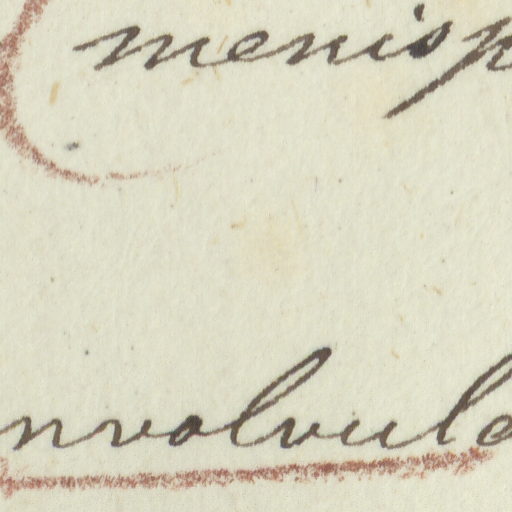 menisp
nvolvule